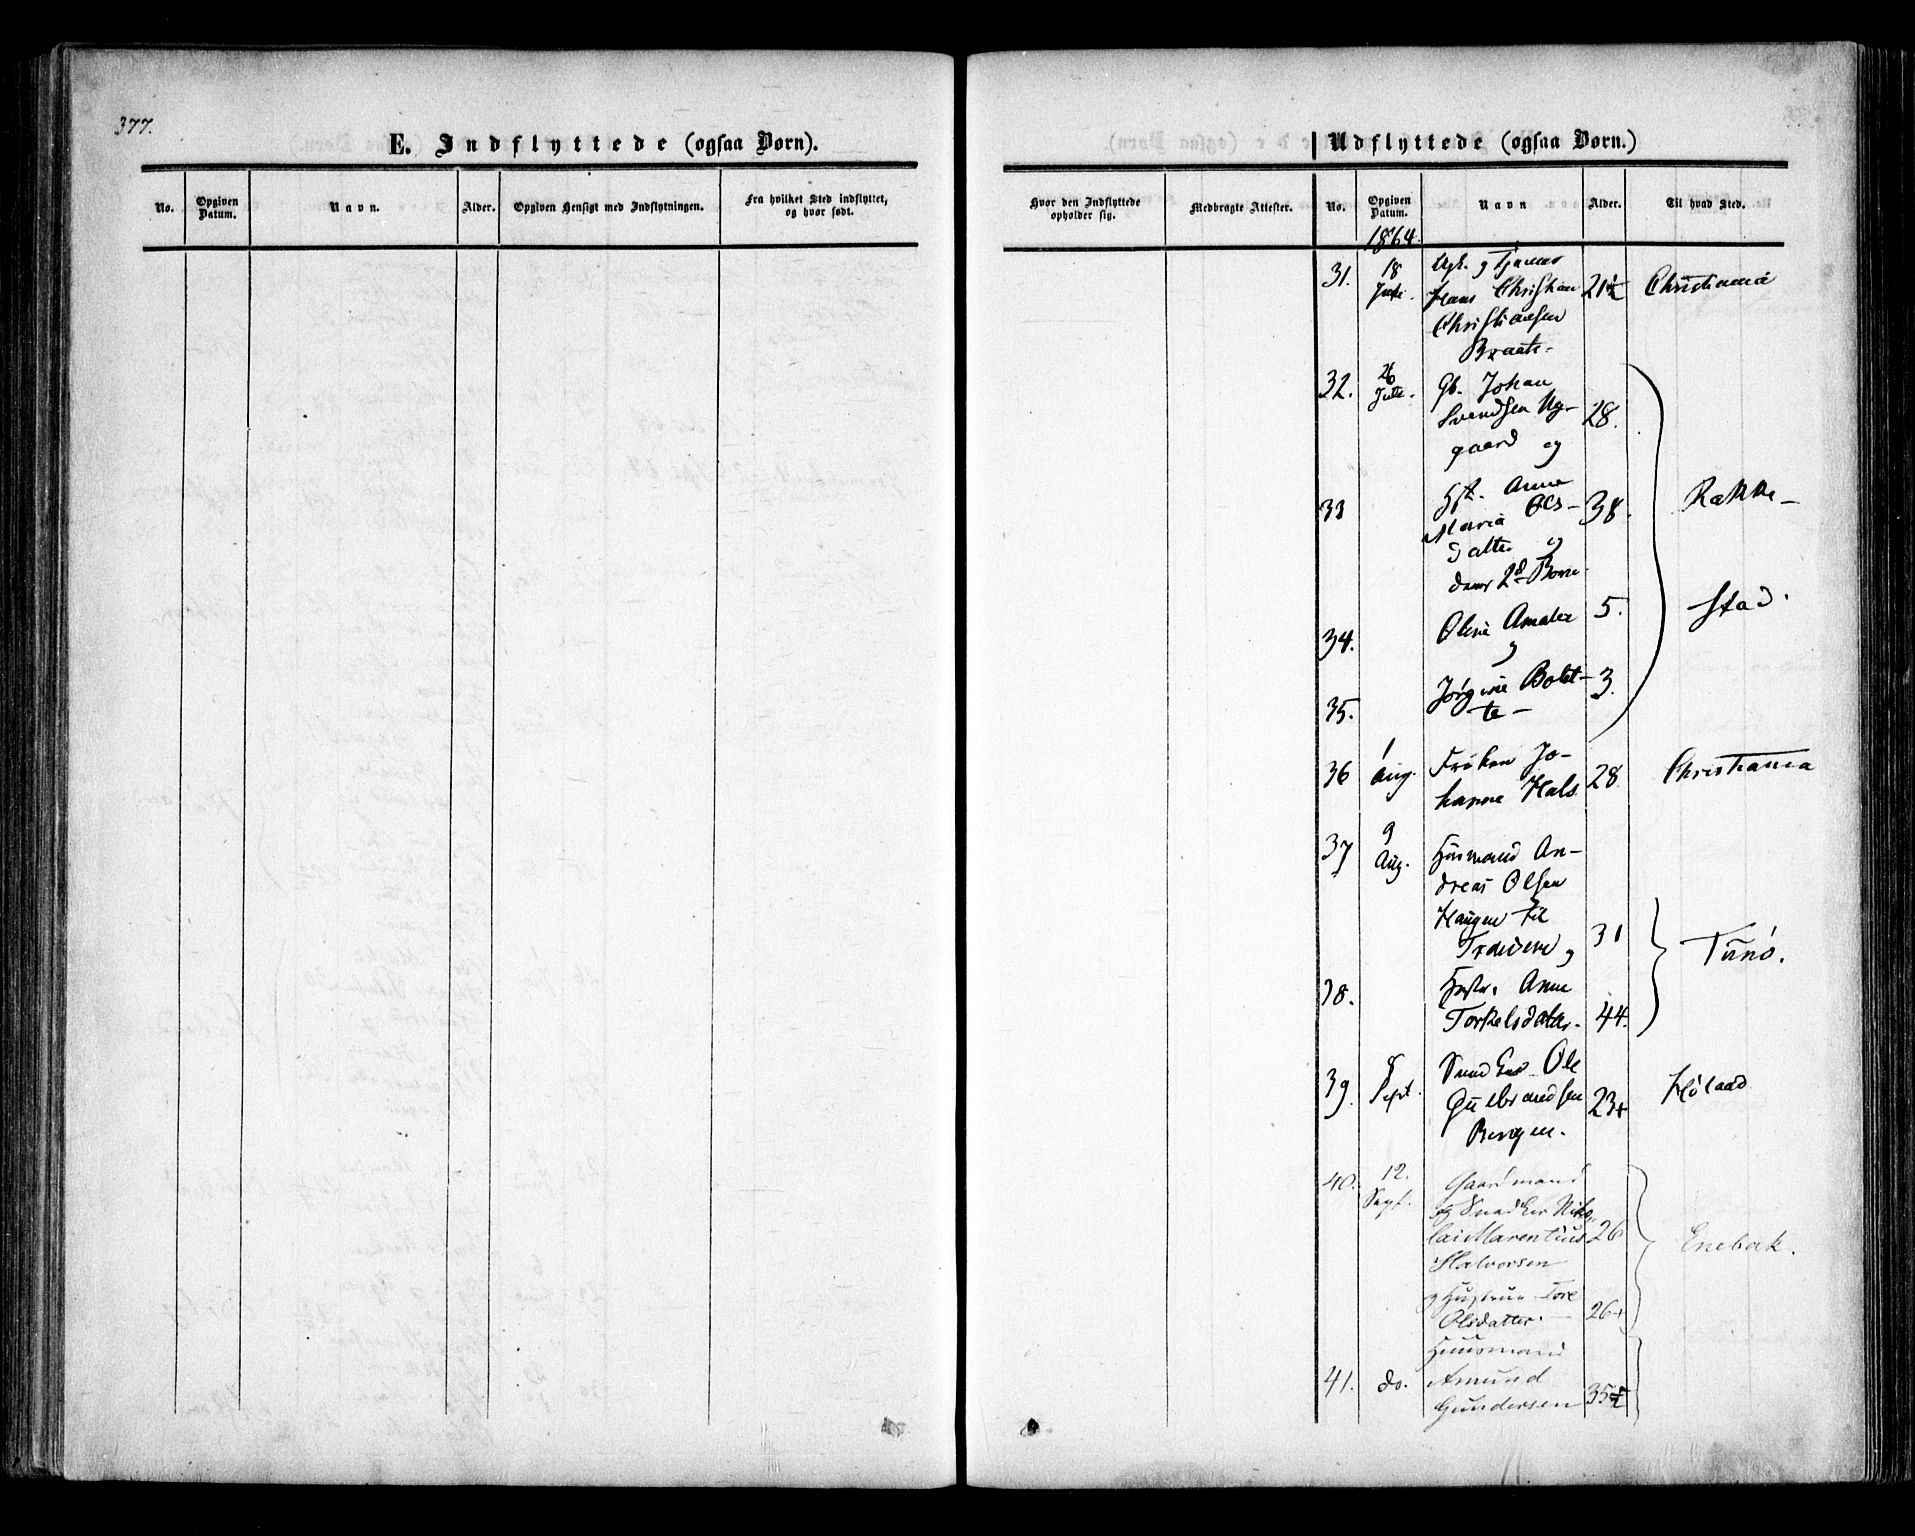 377.
E. Indflyttede (ogsaa Børn).
No.
Opgiven Datum.
Navn.
Alder.
Opgiven Hensigt med Indflytningen.
Fra hvilket Sted indflyttet, og hvor født.
Udflyttede (ogsaa Børn.)
Hvor den Indflyttede opholder sig.
Medbragte Attester.
No.
Opgiven Datum.
Navn
Alder.
Til hvad Sted.
1864.
31. 18 Ugk. g Tjener
Hans Christian 21½ Christiania
Christiansen
Braate-
32. 26 Gb. Johan
Svendsen Ny- 28.
gaard og
33 Hst. Anne
Maria Ols- 38. Rakke-
datter og
deres 2d Børn
34. Oline Amalie 5. stad.
g
35. Jørgine Bolet- 3.
te-
36 1 Aug. Frøken Jo- 28 Christiania
hanne Hals
37 9 Aug. Husmand An-
dreas Olsen
Haugen til 31
og Tunø.
38. Hustr. Anne
Torkelsdatter. 44.
39. 8 Sept. Snedker Ole
Gulbrandsen 23+ Høland
Bergen.
40. 12. Sept. Gaardmand
og Snedker Niko-
lai Marentius 26 Enebak.
Halvorsen
g Hustrue Tore
Olsdatter. 26+
Huusmand
41. do. Amund
Gundersen 35½